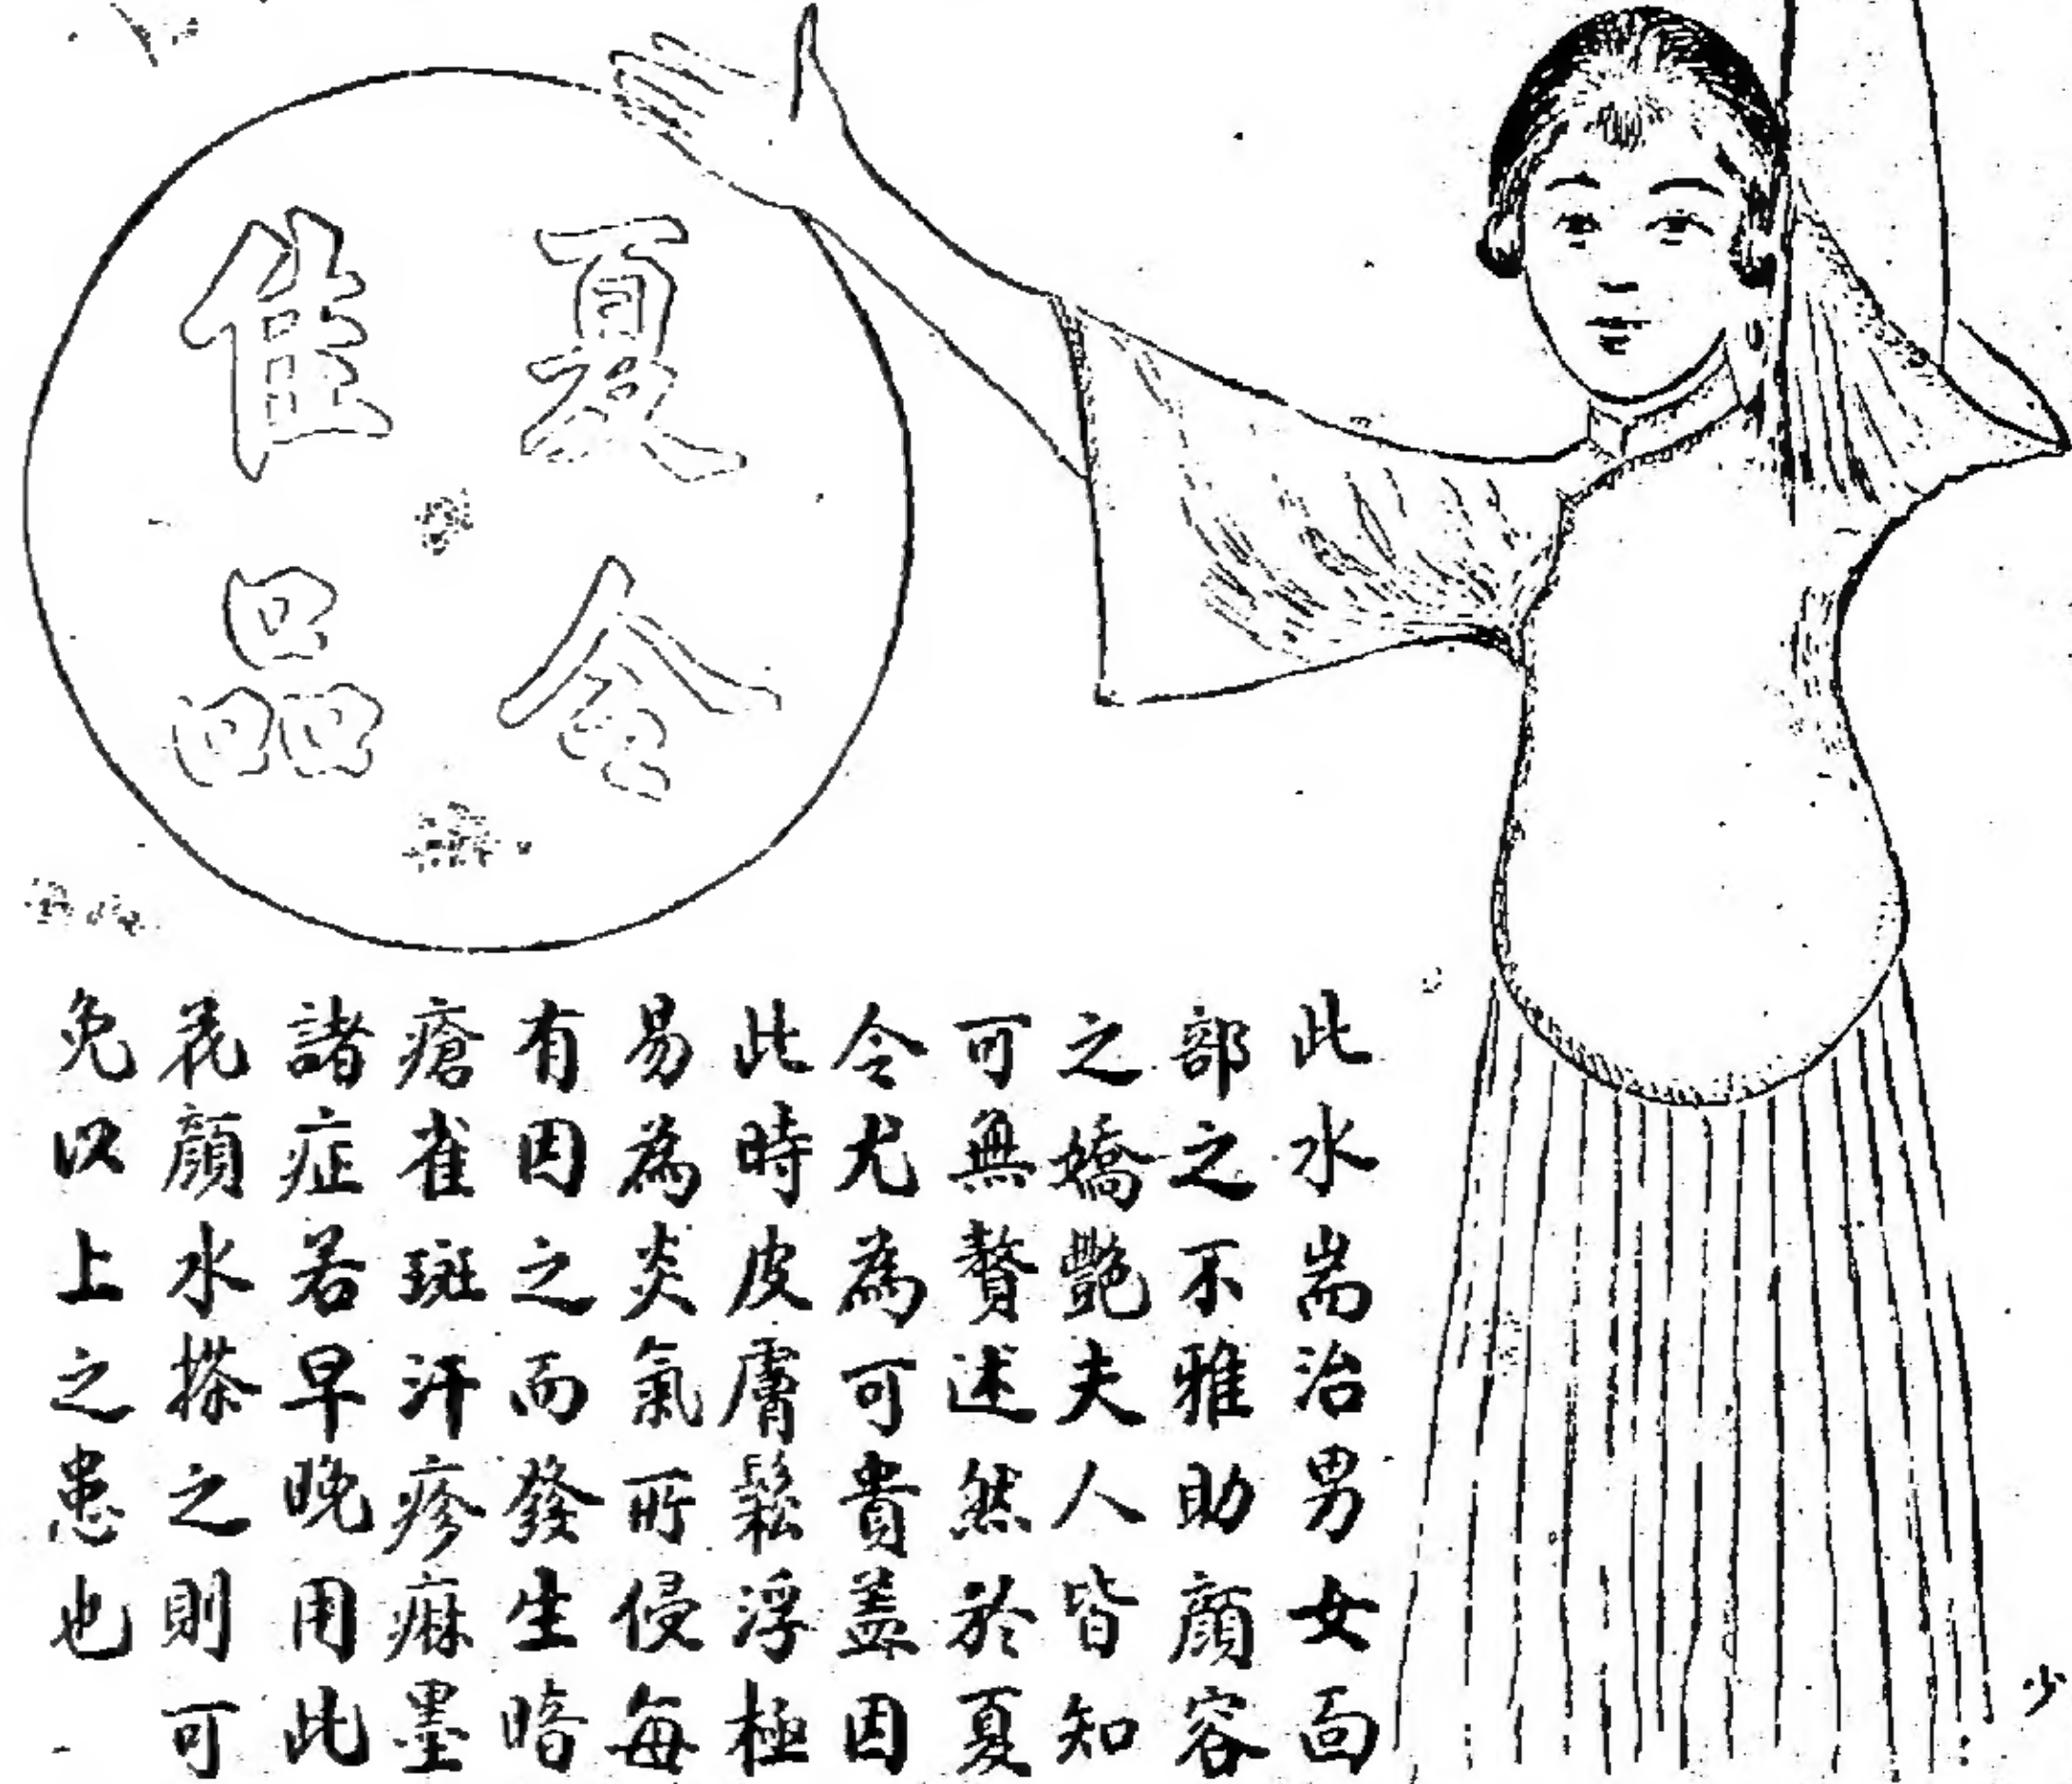 夏令
佳品
此水耑治男女面
部之不雅助顔容
之嬌艷夫人皆知
可無贅述然於夏
令尤為可貴蓋因
此時皮膚鬆浮極
易為炎氣所侵每
有因之而發生暗
瘡雀斑汗疹痳墨
諸症若早晚用此
花顔水搽之則可
免以上之患也
少